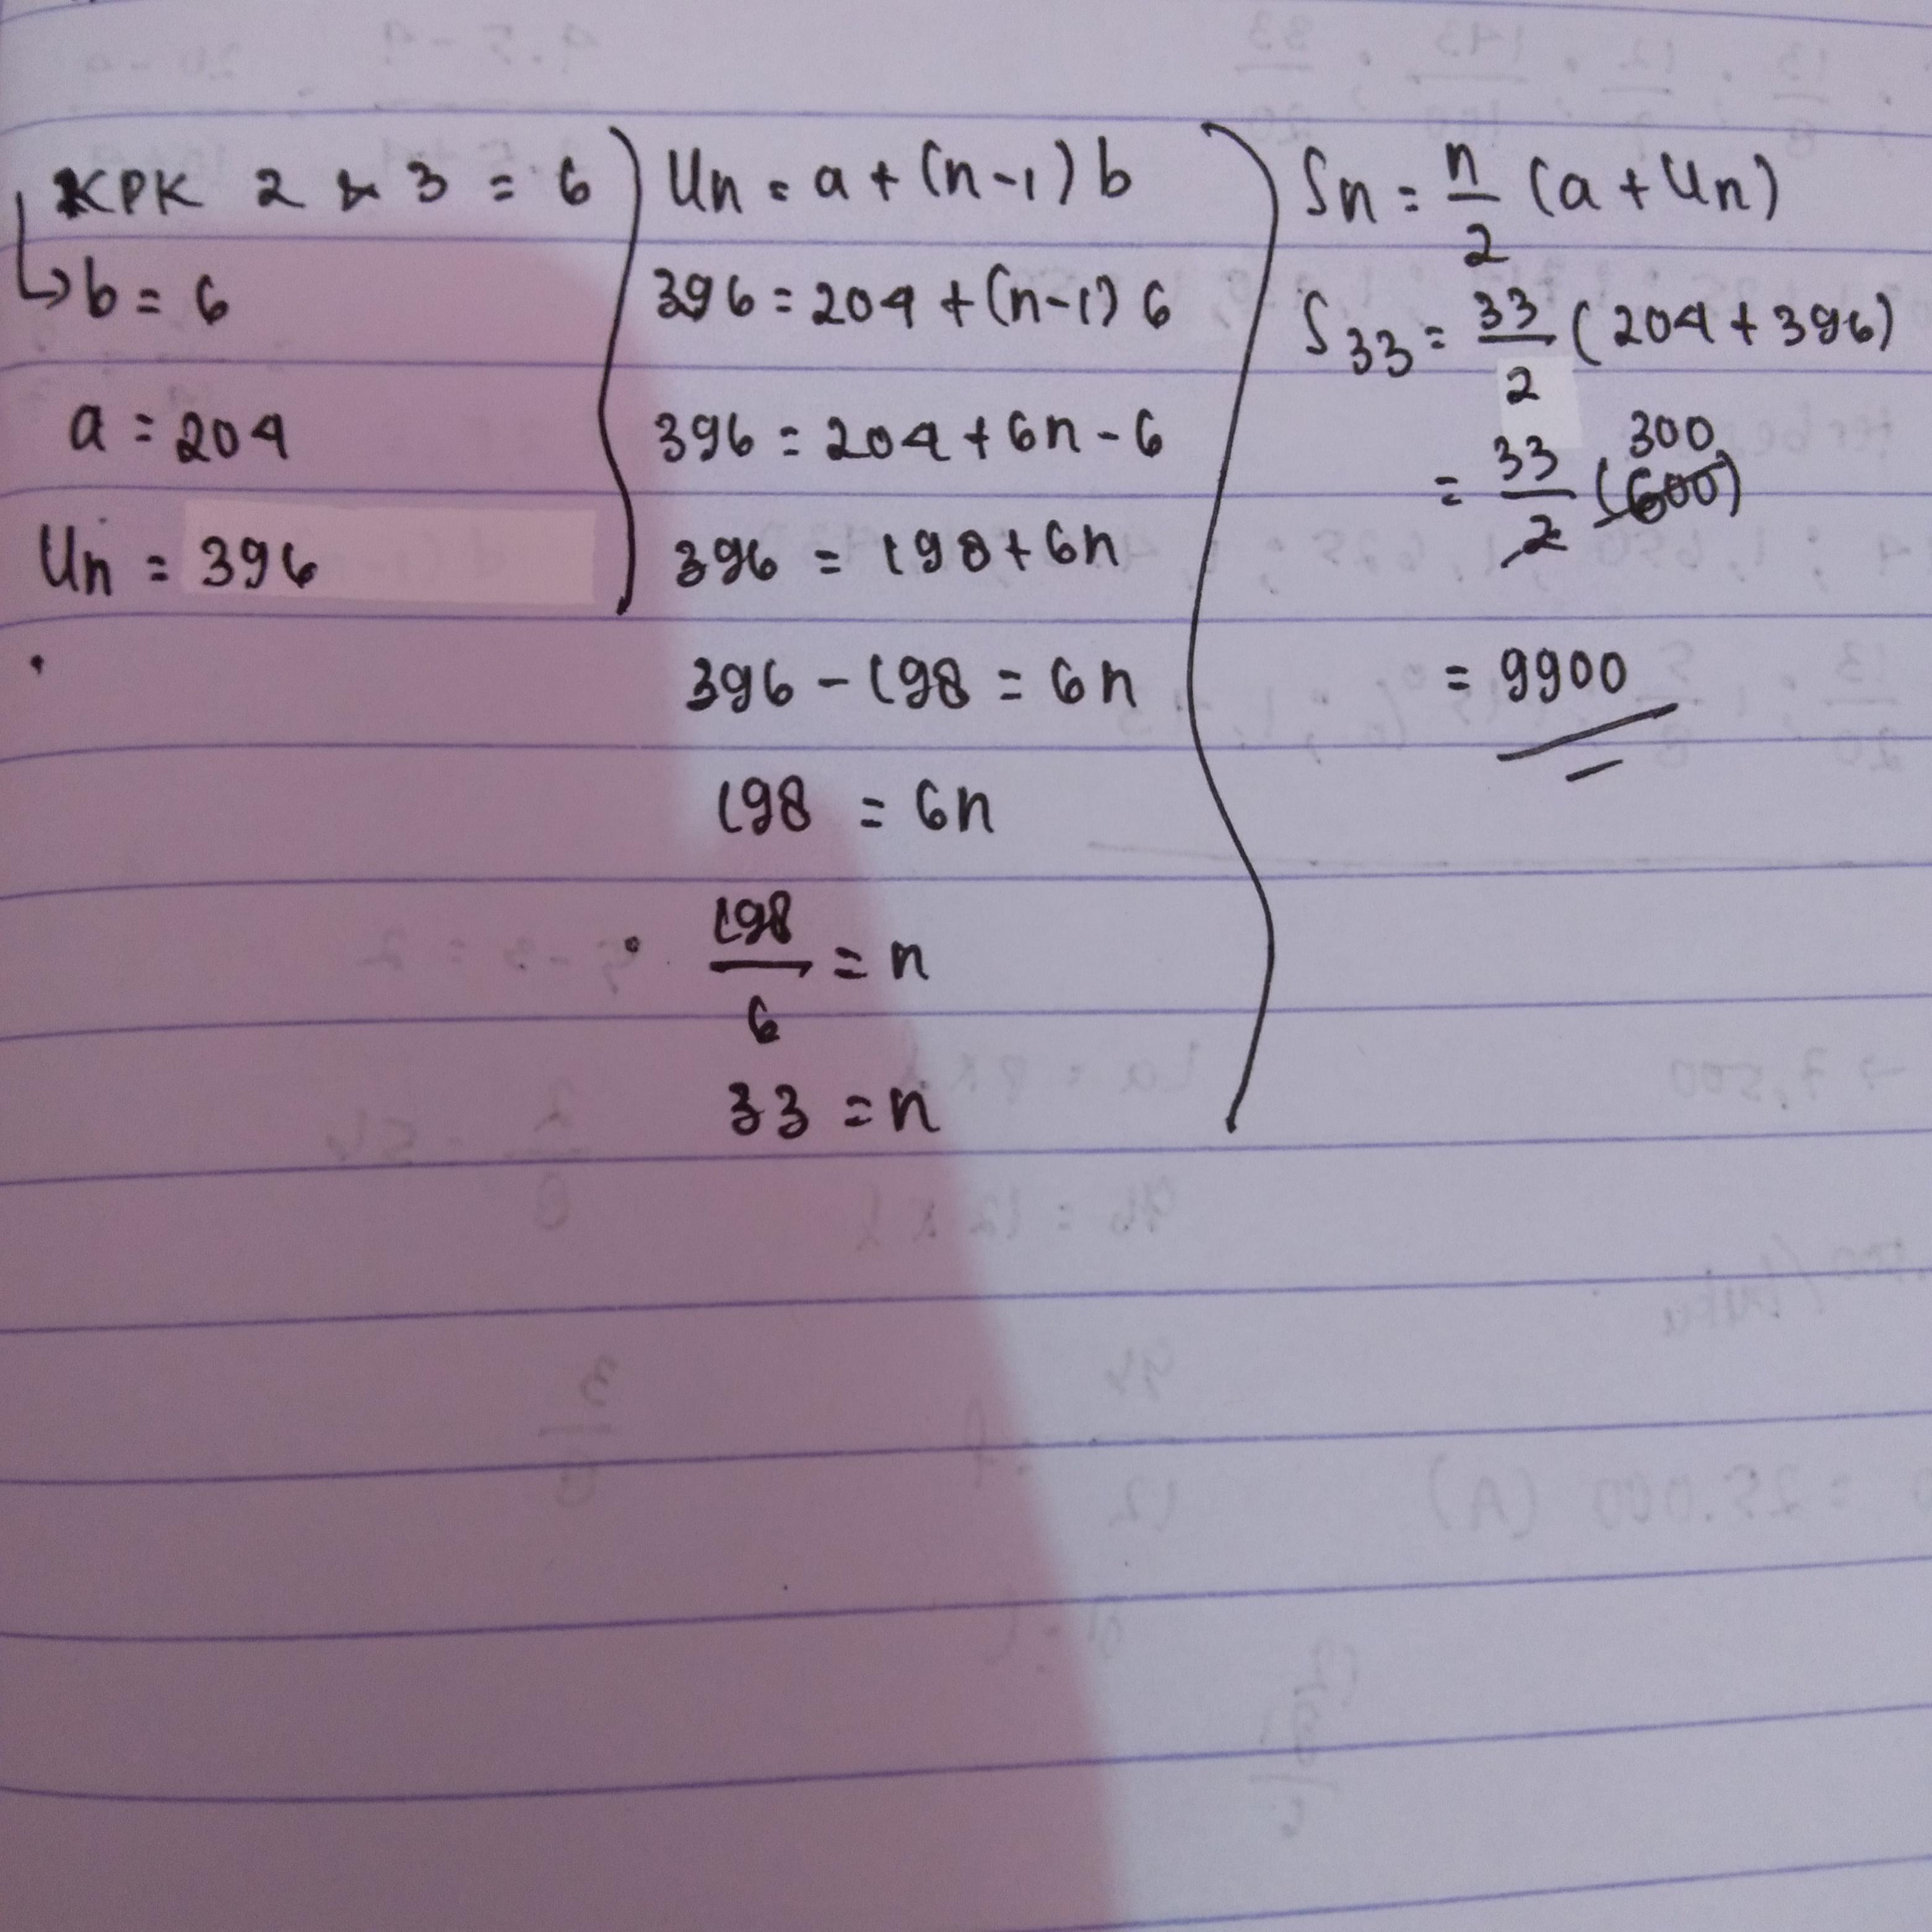 KPK 2 & 3 = 6
↳ b = 6
a = 204
Un = 396
Un = a + (n-1) b
396 = 204 + (n-1) 6
396 = 204 + 6n - 6
396 = 198 + 6n
396 - 198 = 6n
198 = 6n
198/6 = n
33 = n
Sn = n/2 (a + Un)
S33 = 33/2 (204 + 396)
300
= 33/2 (600)
= 9900